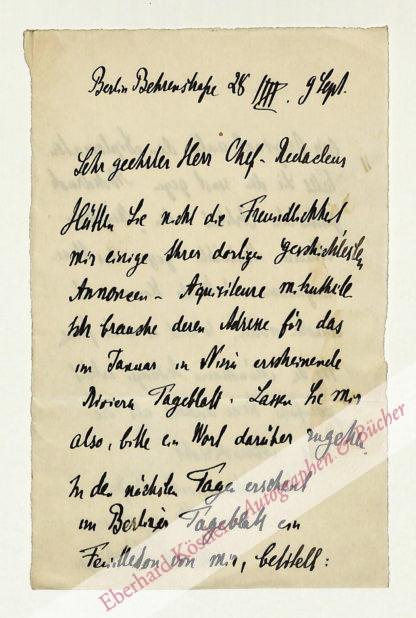 Berlin Behrenstraße 28 /III. 9 Sept.
Sehr geehrter Herr Chef-Redacteur
Hätten Sie nicht die Freundlichkeit
mir einige Ihrer dortigen geschicktesten
Annoncen-Aquisiteure mitzuteilen
Ich brauche deren Adresse für das
im Januar in Nizza erscheinende
Riviera Tageblatt. Lassen Sie mir
also, bitte ein Wort darüber zugehen.
In den nächsten Tagen erscheint
im Berliner Tageblatt ein
Feuilleton von mir, betitelt:
Eberhard Köstler Autographen & Bücher